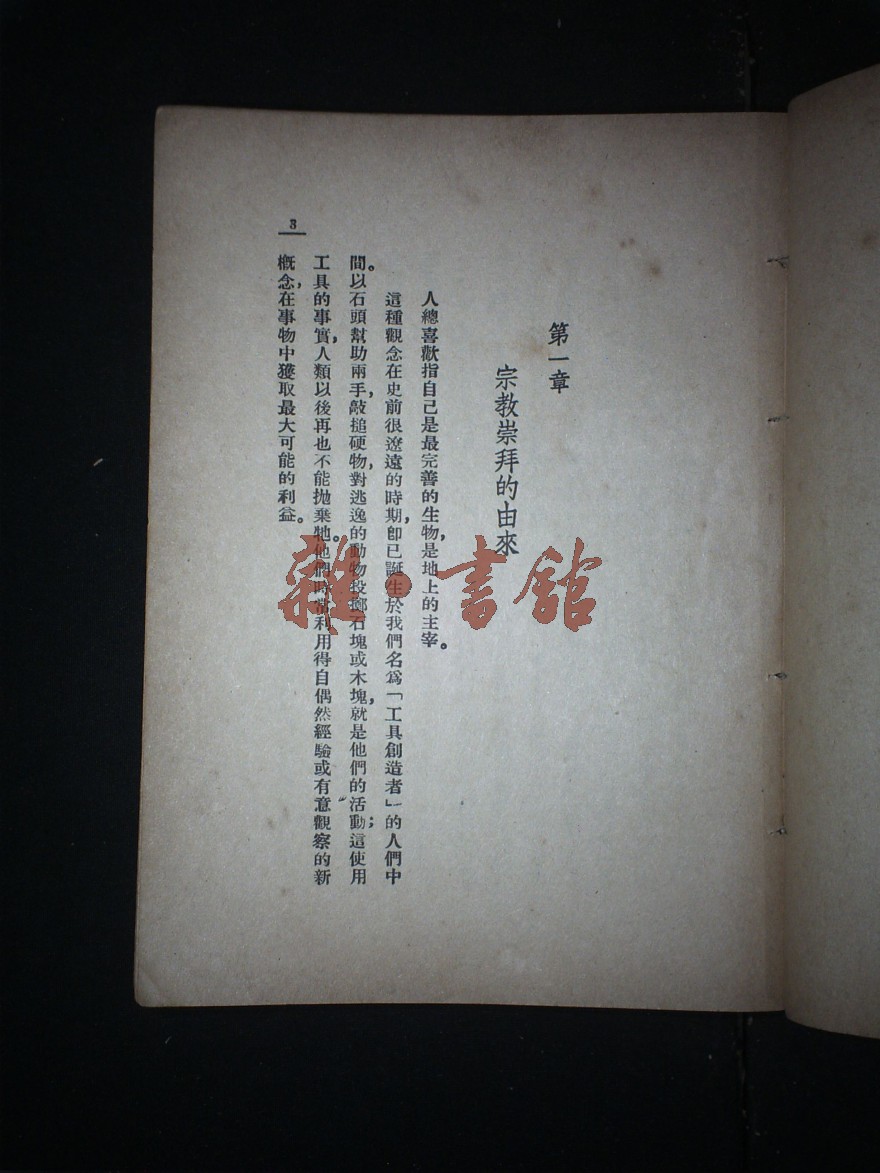 第一章
宗教崇拜的由來
人總喜歡指自己是最完善的生物，是地上的主宰。
這種觀念在史前很遼遠的時期，卽已誕生於我們名爲「工具創造者」的人們中
間。以石頭幫助兩手，敲搥硬物，對逃逸的動物投擲石塊或木塊，就是他們的活動；這使用
工具的事實，人類以後再也不能拋棄牠。他們時常利用得自偶然經驗或有意觀察的新
概念，在事物中獲取最大可能的利益。
3
雜·書館